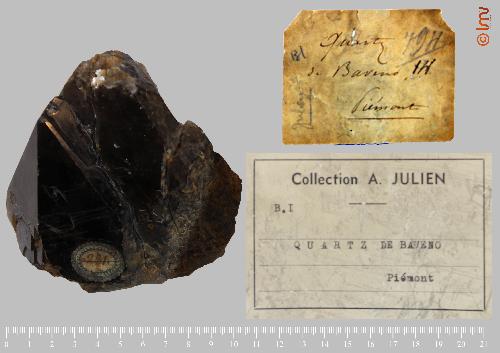 © lmv
Quartz 794
de Baveno 1H
Piémont
Collection A. JULIEN
B.I
QUARTZ DE BAVENO
Piémont
0 1 2 3 4 5 6 7 8 9 10 11 12 13 14 15 16 17 18 19 20 21